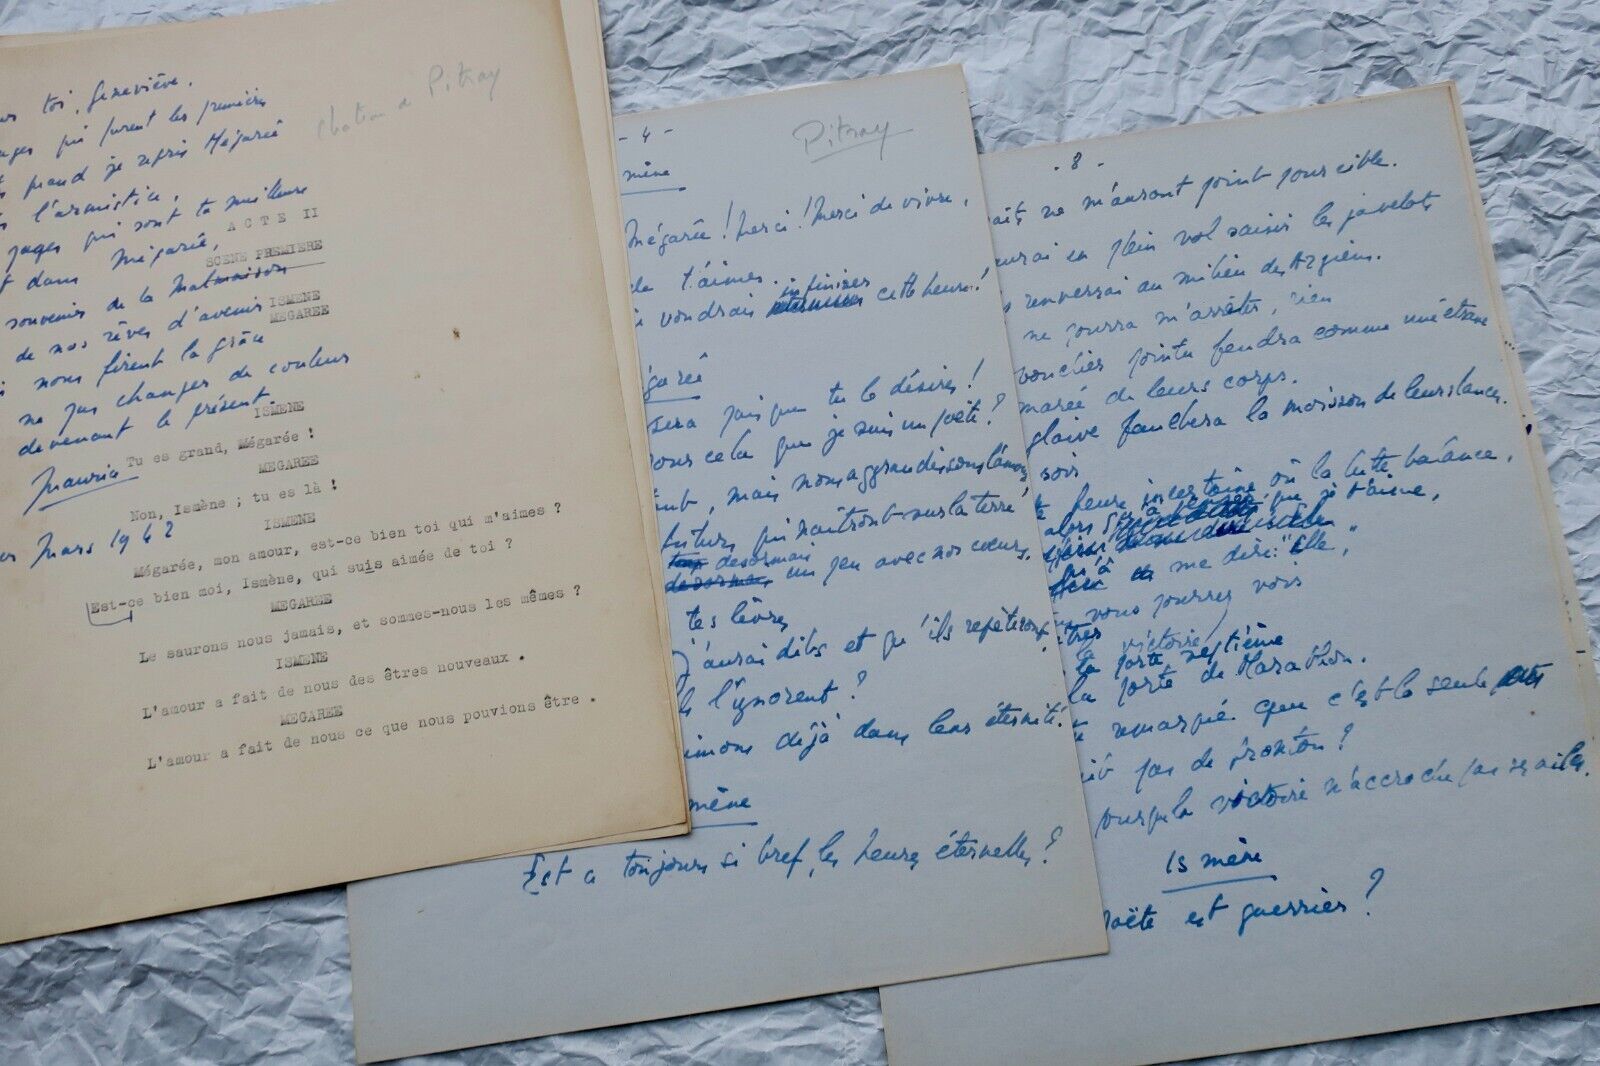 toi, Geneviève.
qui furent les premières
quand je repris Mégarée
l'armistice,
pages qui sont ta meilleure
dans Mégarée,
souvenir de la Malmaison
de nos rêves d'avenir
nous firent la grâce
ne pas changer de couleur
devenant le présent.
Mars 1942
Pitray
ACTE II
SCENE PREMIERE
ISMENE
MEGAREE
ISMENE
Tu es grand, Mégarée !
MEGAREE
Non, Ismène ; tu es là !
ISMENE
Mégarée, mon amour, est-ce bien toi qui m'aimes ?
Est-ce bien moi, Ismène, qui suis aimée de toi ?
MEGAREE
Le saurons nous jamais, et sommes-nous les mêmes ?
ISMENE
L'amour a fait de nous des êtres nouveaux .
MEGAREE
L'amour a fait de nous ce que nous pouvions être .
- 4 -
Pitray
mène
Mégarée ! Merci ! Merci de vivre,
t'aimes.
voudrais infiniser cette heure !
garée
sera puisque tu le désires !
pour cela que je suis un poète ?
mais nous aggrandissons l'amour
futurs qui naîtront sur la terre
desormais un peu avec nos coeurs,
tes lèvres
j'aurai dites et qu'ils repèteront
l'ignorent ?
déjà dans leur éternité !
mène
Est-ce toujours si bref, les heures éternelles ?
- 8 -
ne m'auront point pour cible.
en plein vol saisir les javelots
renverrai au milieu des Argiens.
ne pourra m'arrêter, rien
bouclier pointu fendra comme une étrave
marée de leurs corps.
glaive fauchera la moisson de leurs lances.
soir
heure incertaine où la lutte balance,
que je t'aime,
me dire : "Elle",
vous pourrez voir
la victoire
la porte septième
la porte de Marathon.
remarqué que c'est la seule
pas de fronton ?
pour que la victoire n'accroche pas ses ailes.
Ismène
poëte est guerrier ?